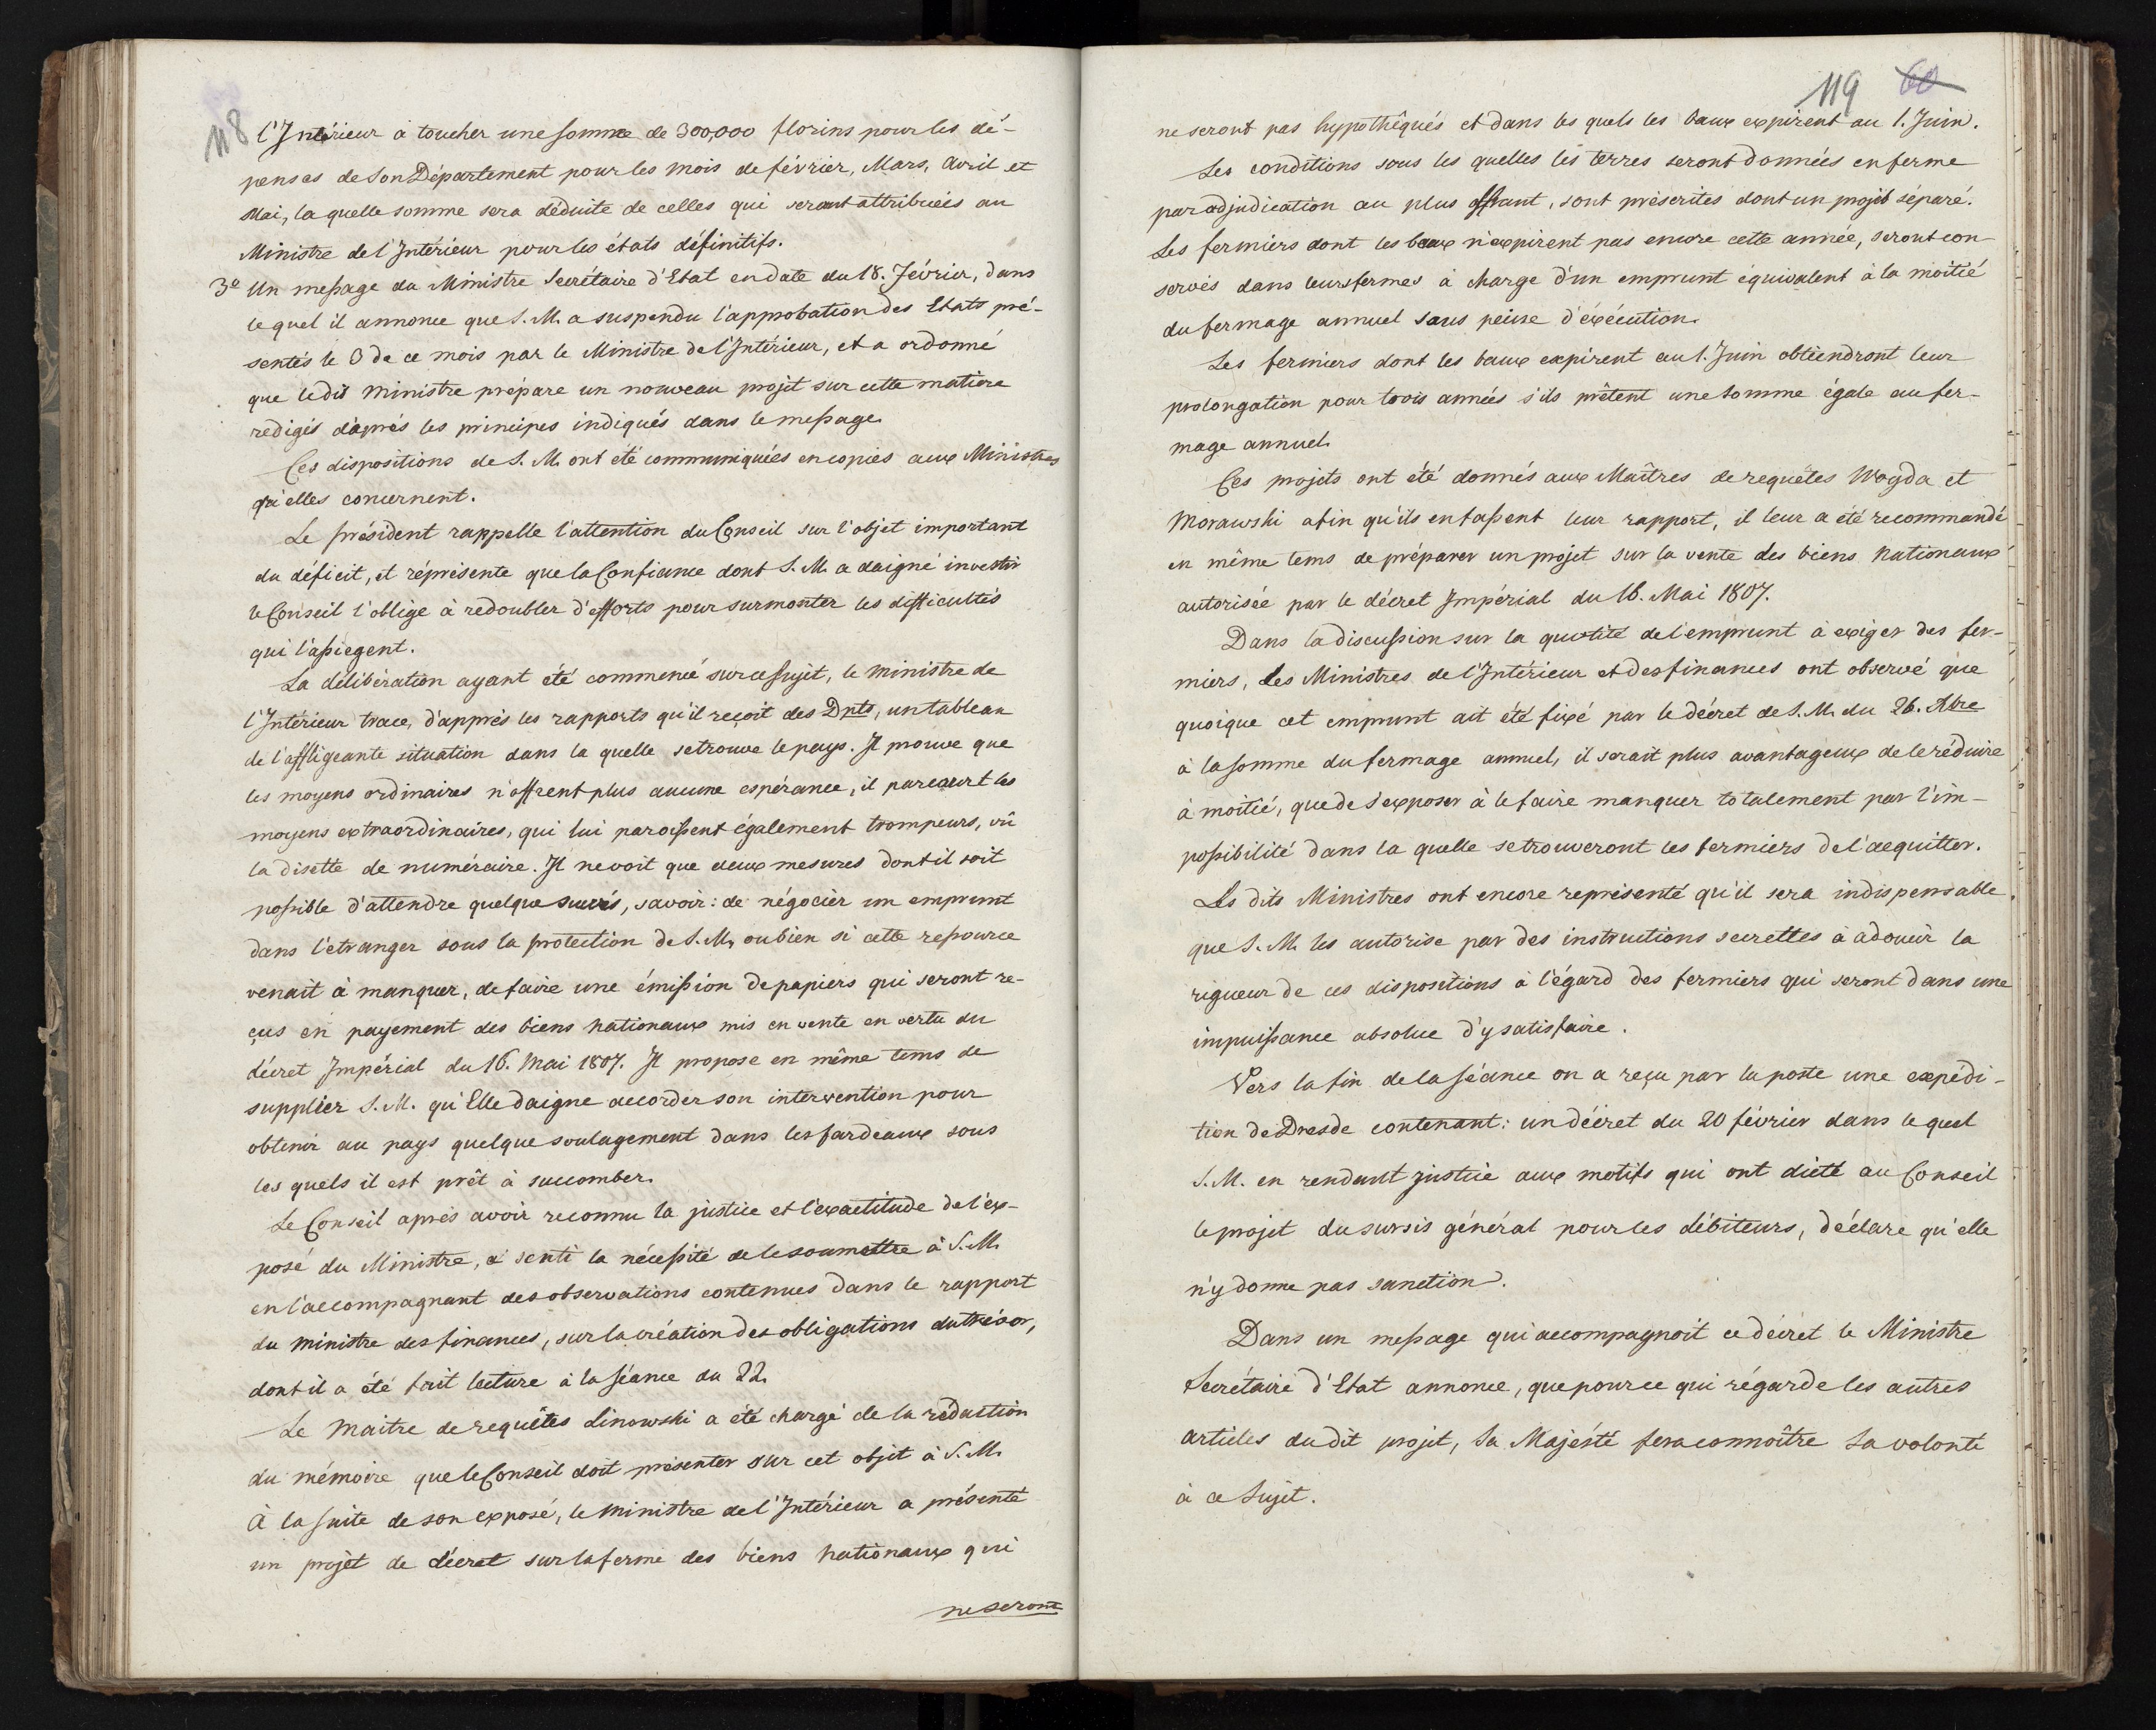 118
l'Intérieur à toucher une somme de 300,000 florins pour les dé-
penses de son Département pour les mois de février, Mars, Avril et
Mai, la quelle somme sera déduite de celles qui seront attribuées au
Ministre de l'Intérieur pour les états définitifs.
3º Un message du Ministre Secrétaire d'Etat en date du 18. Février, dans
le quel il annonce que S. M. a suspendu l'approbation des Etats pré-
sentés le 3 de ce mois par le Ministre de l'Intérieur, et a ordonné
que ledit Ministre prépare un nouveau projet sur cette matiere
redigés d'aprés les principes indiqués dans le message.
Ces dispositions de S. M. ont été communiquées en copies aux Ministres
qu'elles concernent.
Le président rappelle l'attention du Conseil sur l'objet important
du déficit, et réprésente que la Confiance dont S. M. a daigné investir
le Conseil l'oblige à redoubler d'efforts pour surmonter les difficultés
qui l'assiegent.
La délibération ayant été commencé sur ce sujet, le ministre de
l'Intérieur trace, d'apprés les rapports qu'il reçoit des Dpts, un tableau
de l'affligeante situation dans la quelle se trouve le pays. Il prouve que
les moyens ordinaires n'offrent plus aucune espérance, il parcourt les
moyens extraordinaires, qui lui paroissent également trompeurs, vû
la disette de numéraire. Il ne voit que deux mesures dont il soit
possible d'attendre quelque succés, savoir: de négocier un emprunt
dans l'etranger sous la protection de S. M, ou bien si cette ressource
venait à manquer, de faire une émission de papiers qui seront re-
çus en payement des biens nationaux mis en vente en vertu du
décret Impérial du 16. Mai 1807. Il propose en même tems de
supplier S. M. qu'Elle daigne accorder son intervention pour
obtenir au pays quelque soulagement dans les fardeaux sous
les quels il est prêt à succomber.
Le Conseil aprés avoir reconnu la justice et l'exactitude de l'ex-
posé du Ministre, a senti la nécessité de le soumettre à S. M.
en l'accompagnant des observations contenues dans le rapport
du ministre des finances, sur la création des obligations du trésor,
dont il a été fait lecture à la séance du 22.
Le Maitre de requêtes Linowski a été chargé de la rédaction
du mémoire que le Conseil doit présenter sur cet objet à S. M.
À la suite de son exposé, le ministre de l'Intérieur a présenté
un projet de décret sur la ferme des biens nationaux qui
ne seront
119 60
ne seront pas hypothêqués et dans les quels les baux expirent au 1. Juin.
Les conditions sous les quelles les terres seront données en ferme
par adjudication au plus offrant, sont préscrites dont un projet séparé.
Les fermiers dont les baux n'expirent pas encore cette année, seront con-
servés dans leurs fermes à charge d'un emprunt équivalent à la moitié
du fermage annuel sous peine d'éxécution.
Les fermiers dont les baux expirent au 1. Juin obtiendront leur
prolongation pour trois années s'ils prêtent une somme égale au fer-
mage annuel.
Ces projets ont été donnés aux Maîtres de requêtes Woyda et
Morawski afin qu'ils en fassent leur rapport, il leur a été recommandé
en même tems de préparer un projet sur la vente des biens nationaux
autorisée par le décret Impérial du 16. Mai 1807.
Dans la discussion sur la quotité de l'emprunt à exiger des fer-
miers, Les Ministres de l'Intérieur et des finances ont observé que
quoique cet emprunt ait été fixé par le décret de S. M. du 26. Xbre
à la somme du fermage annuel, il serait plus avantageux de le réduire
à moitié, que de s'exposer à le faire manquer totalement par l'im-
possibilité dans la quelle se trouveront les fermiers de l'acquitter.
Les dits Ministres ont encore représenté qu'il sera indispensable
que S. M. les autorise par des instructions secrettes à adoucir la
rigueur de ces dispositions à l'égard des fermiers qui seront dans une
impuissance absolue d'y satisfaire.
Vers la fin de la séance on a reçu par la poste une expédi-
tion de Dresde contenant: un décret du 20 février dans le quel
S. M. en rendant justice aux motifs qui ont dicté au Conseil
le projet du sursis général pour les débiteurs, déclare qu'elle
n'y donne pas sanction.
Dans un message qui accompagnoit ce décret le Ministre
Secrétaire d'Etat annonce, que pour ce qui régarde les autres
articles du dit projet, Sa Majésté fera connoître Sa volonté
à ce sujet.